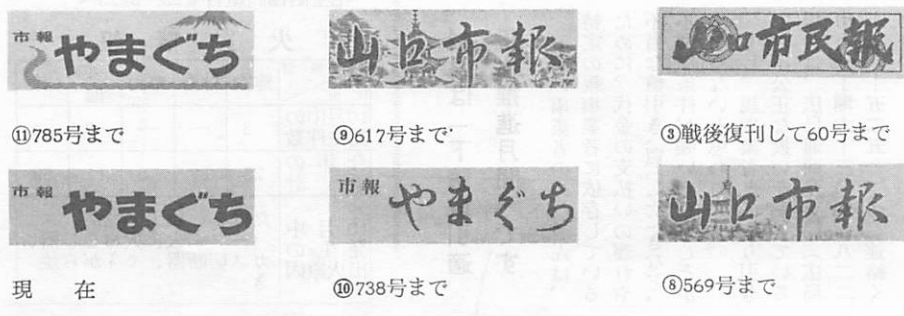 市報 やまぐち
⑪785号まで
山口市報
⑨617号まで
山口市民報
③戦後復刊して60号まで
市報 やまぐち
現 在
市報 やまぐち
⑩738号まで
山口市報
⑧569号まで